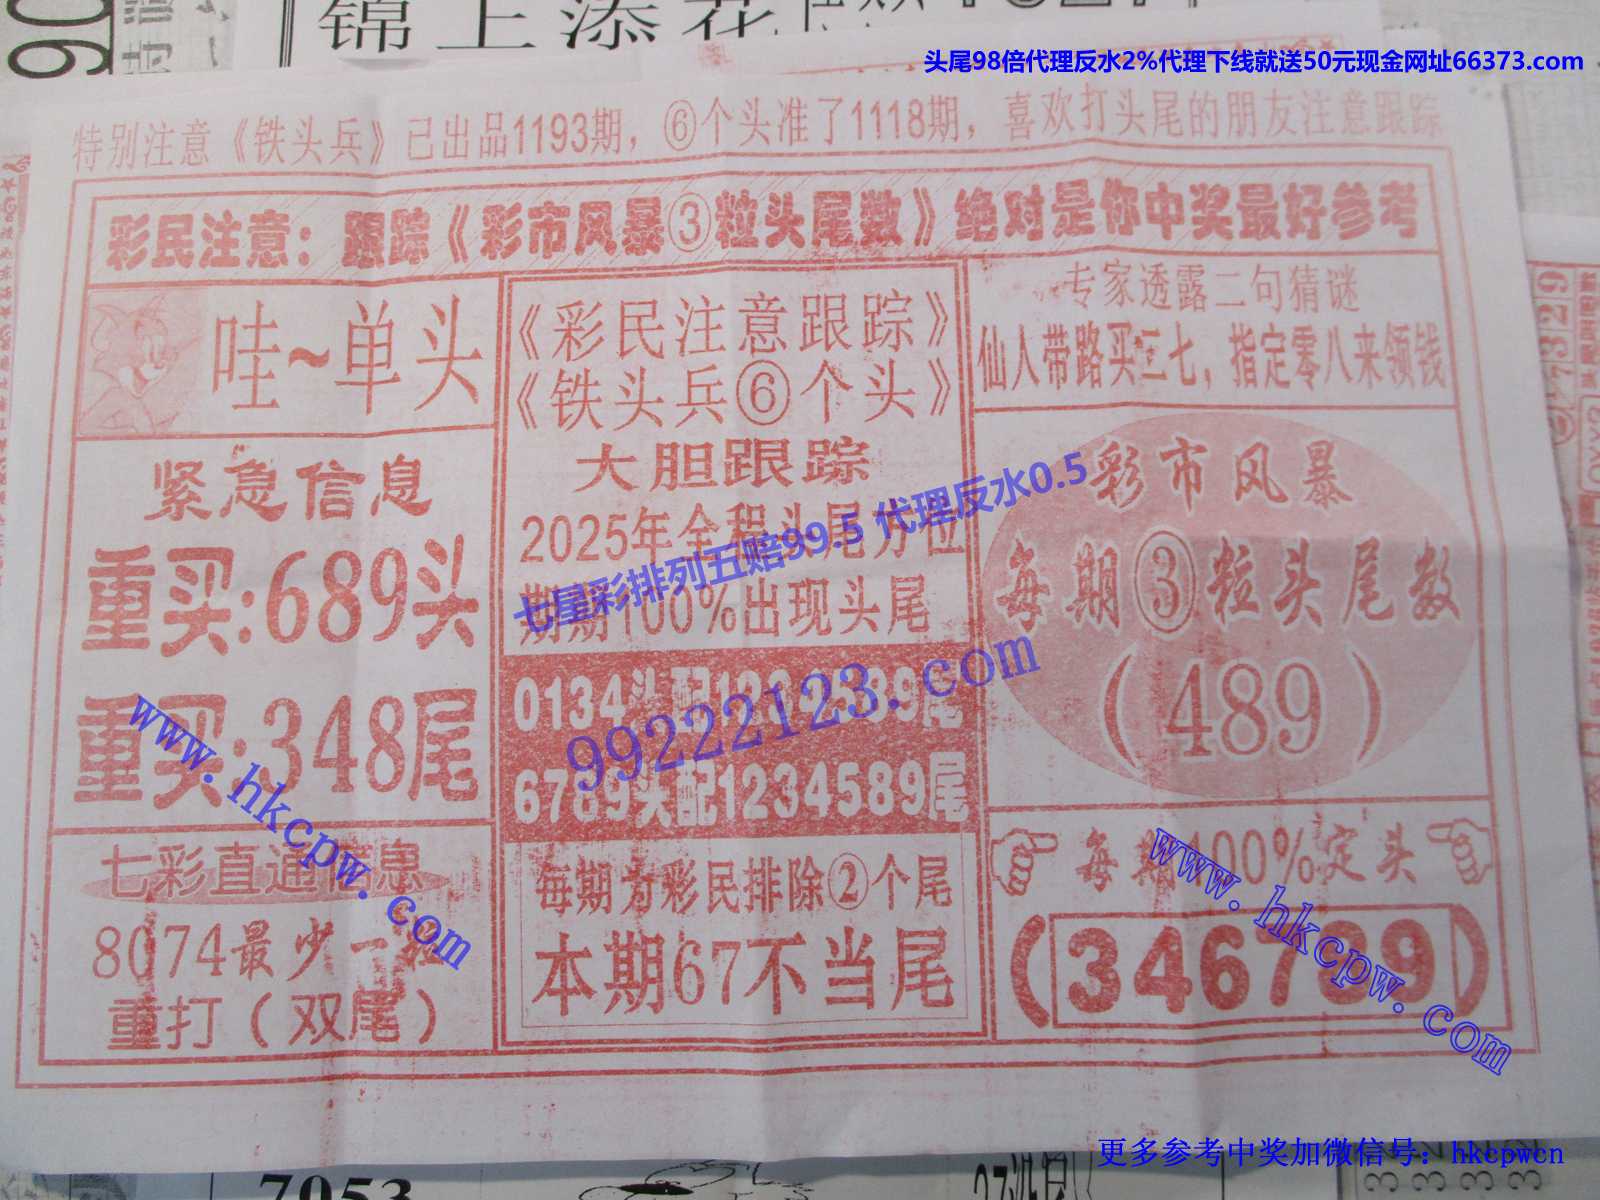 锦上添花
头尾98倍代理反水2%代理下线就送50元现金网址66373.com
特别注意《铁头兵》已出品1193期，⑥个头准了1118期，喜欢打头尾的朋友注意跟踪
彩民注意：跟踪《彩市风暴③粒头尾数》绝对是你中奖最好参考
哇~单头
紧急信息
重买:689头
重买:348尾
七彩直通信息
8074最少一
重打（双尾）
《彩民注意跟踪》
《铁头兵⑥个头》
大胆跟踪
2025年全程头尾方位
期期100%出现头尾
0134头配1234589尾
6789头配1234589尾
每期为彩民排除②个尾
本期67不当尾
专家透露二句猜谜
仙人带路买三七，指定零八来领钱
彩市风暴
每期③粒头尾数
（489）
每期100%定头
（346789）
七星彩排列五赔99.5 代理反水0.5
99222123.com
www.hkcpw.com
www.hkcpw.com
更多参考中奖加微信号：hkcpwcn
7053